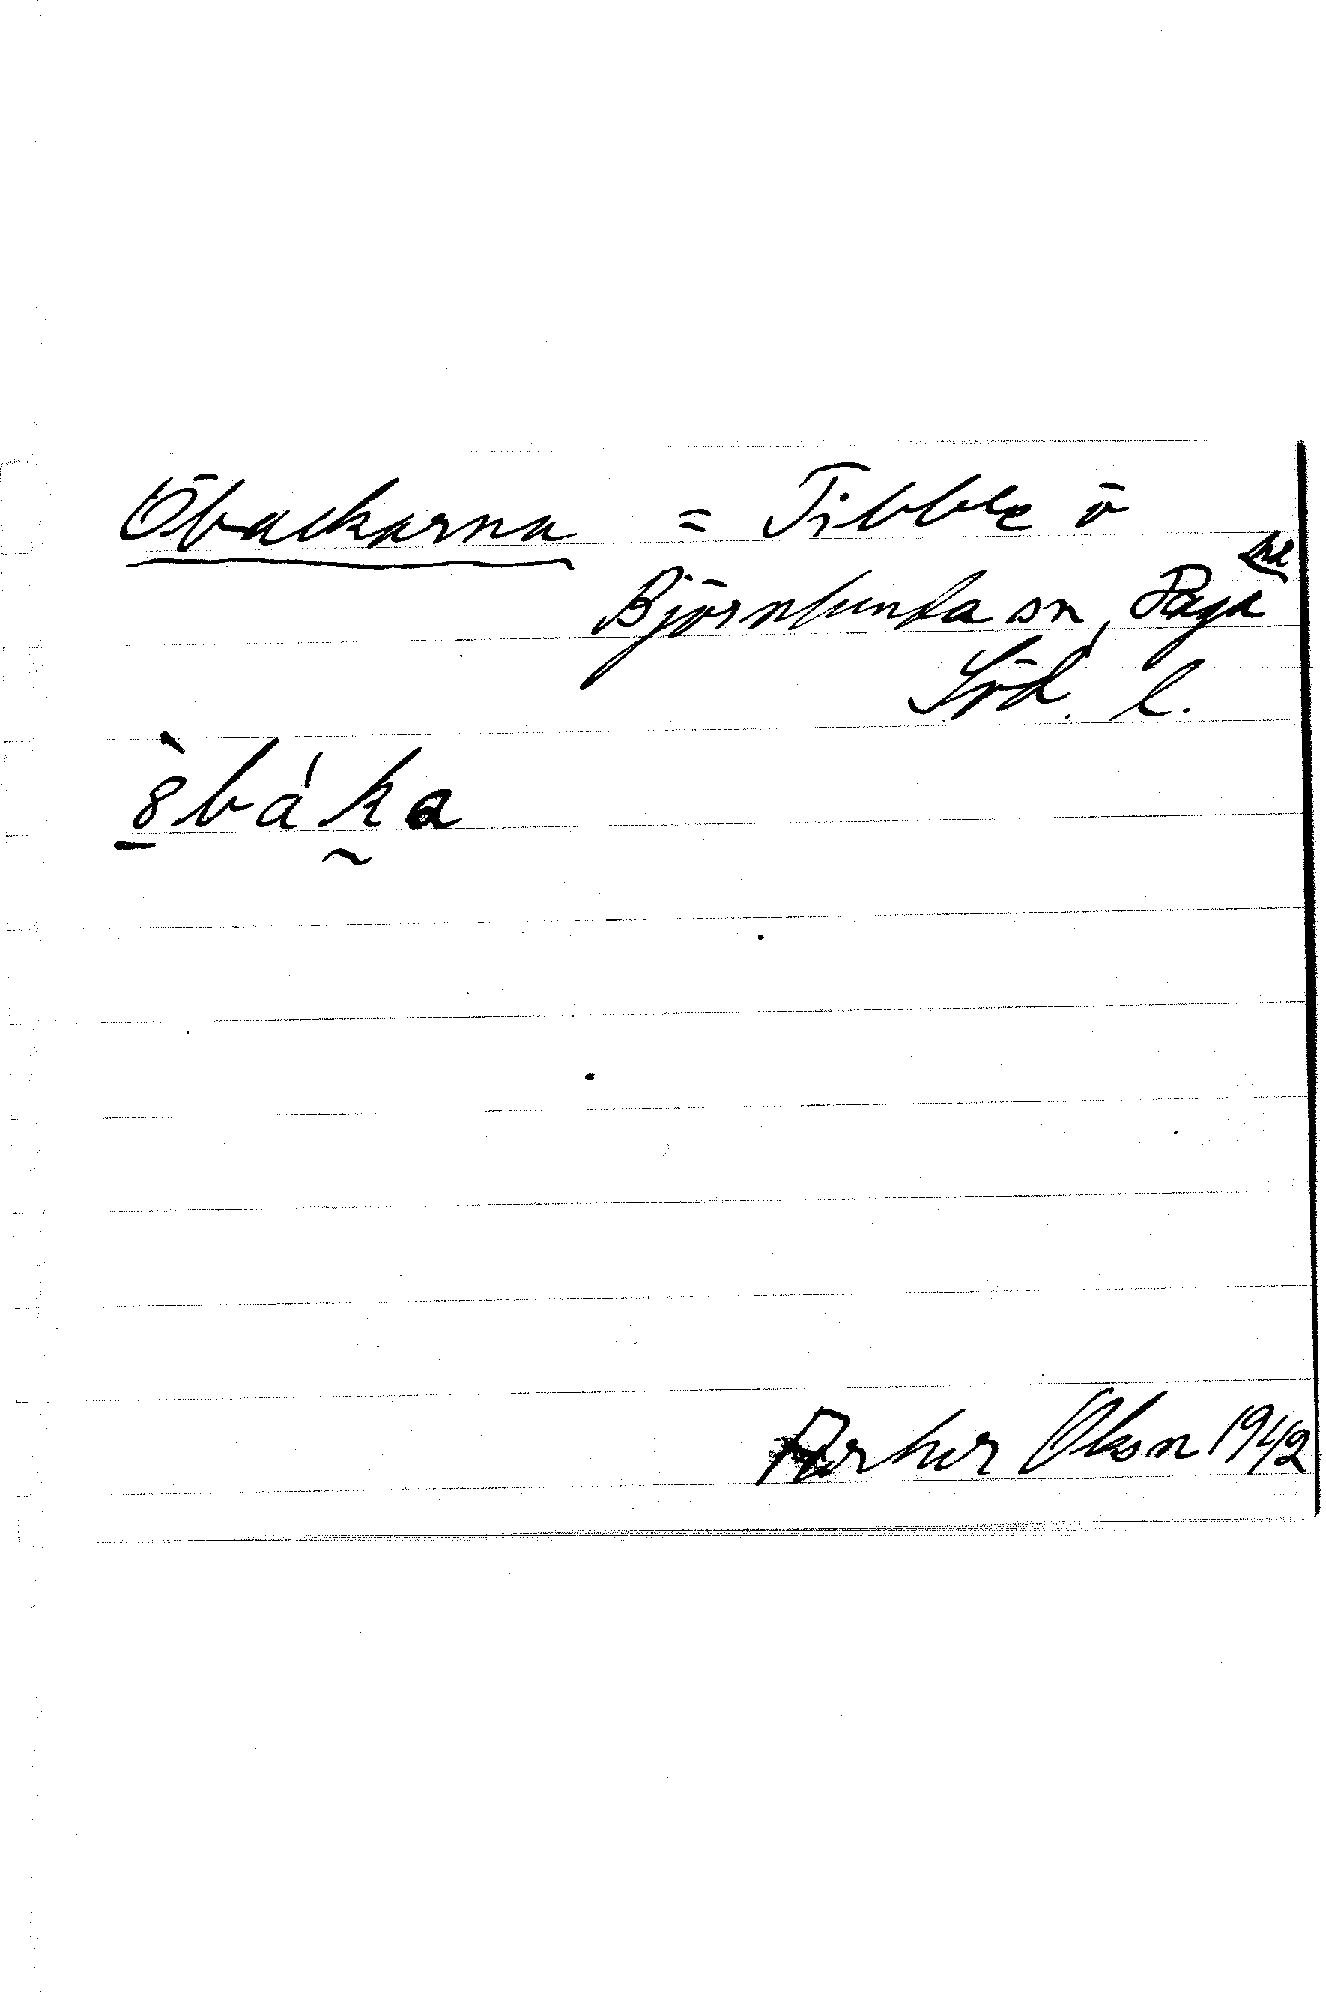 Öbackarna = Tibble ö
Björnlunda sn, Daga hd
Söd. l.
8̀báka
Porher Olson 1942